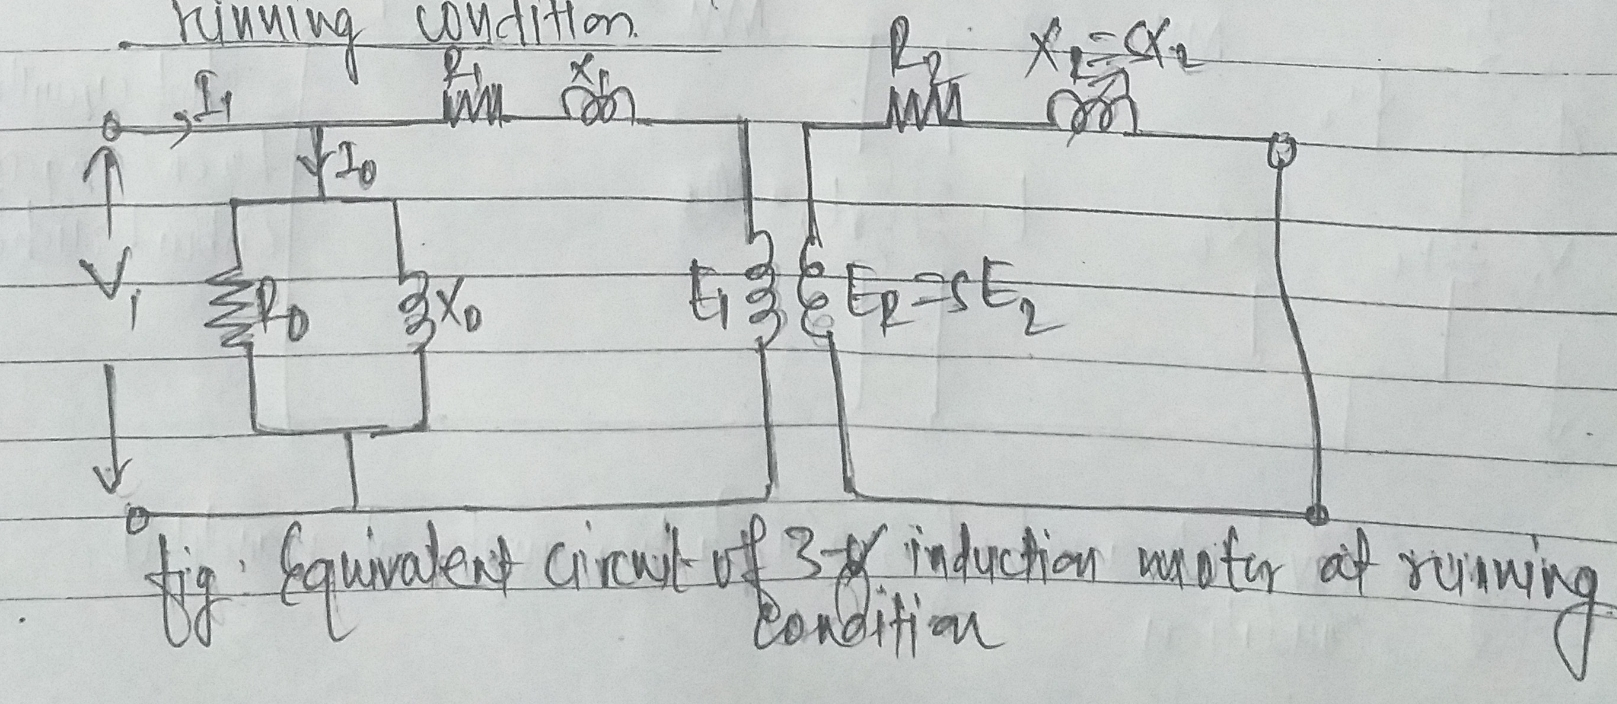 running condition.
R₁ X₁ R₂ X₂=sX₂
I₁
I₀
V₁ R₀ X₀ E₁ E₂=sE₂
fig: Equivalent circuit of 3-ϕ induction motor at running
condition